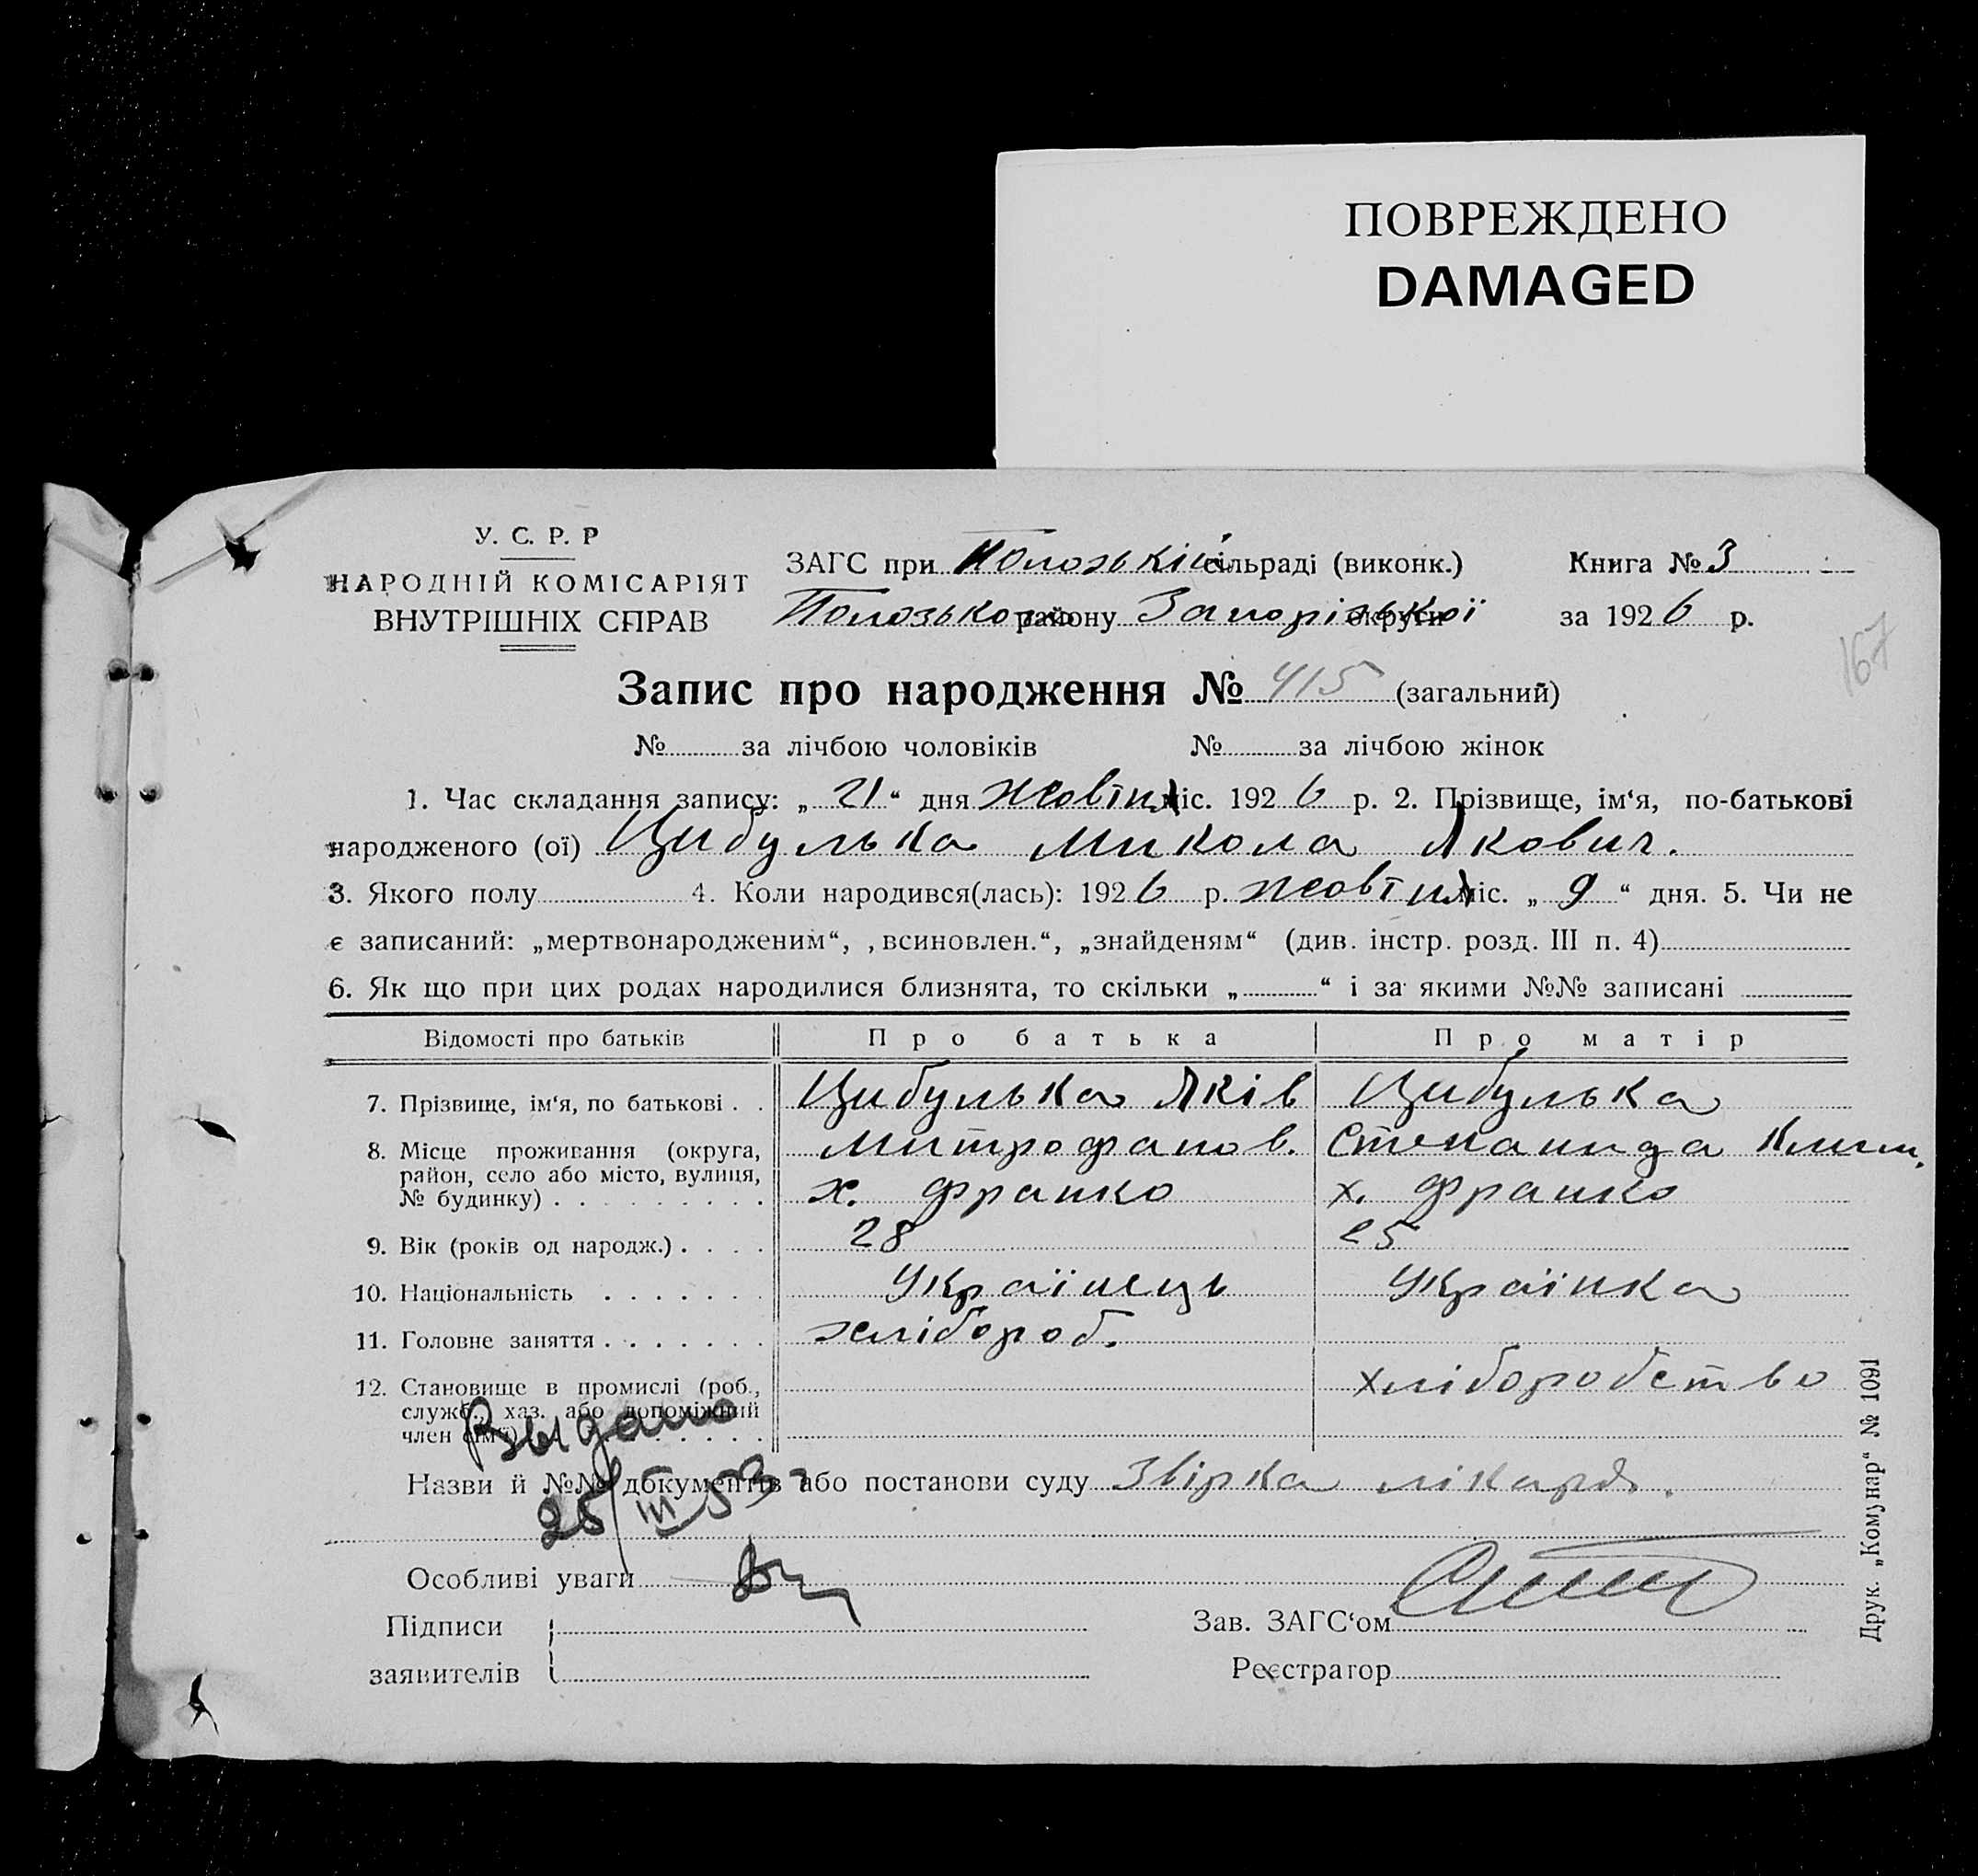 ПОВРЕЖДЕНО
DAMAGED
У. С. Р. Р
НАРОДНІЙ КОМІСАРІЯТ
ВНУТРІШНІХ СПРАВ
ЗАГС при Полозькій сільраді (виконк.) Книга № 3
Полозького району Запорізької округи за 1926 р.
167
Запис про народження № 415 (загальний)
№ за лічбою чоловіків № за лічбою жінок
1. Час складання запису: „21“ дня жовтня міс. 1926 р. 2. Прізвище, ім‘я, по-батькові
народженого (ої) Цибулька Микола Якович.
3. Якого полу 4. Коли народився(лась): 1926 р. жовтня міс. „9“ дня. 5. Чи не
є записаний: „мертвонародженим“, ‚всиновлен.“, „знайденям“ (див. інстр. розд. III п. 4)
6. Як що при цих родах народилися близнята, то скільки „ “ і за якими №№ записані
Відомості про батьків Про батька Про матір
7. Прізвище, ім‘я, по батькові . . Цибулька Яків Цибулька
8. Місце проживання (округа, Митрофанов. Степанида Клим.
район, село або місто, вулиця,
№ будинку) . . . . . . . . . х. Франко х. Франко
9. Вік (років од народж.) . . . . 28 25
10. Національність . . . . . . . Українець Українка
11. Головне заняття . . . . . . . хлібороб.
12. Становище в промислі (роб., хліборобство
служб., хаз. або допоміжний
член сім‘ї)
Выдано
Назви й №№ документів або постанови суду Звірка лікаря.
25/III 53
Особливі уваги
Підписи Зав. ЗАГС‘ом
заявителів Реєстратор
Друк. „Комунар“ № 1091